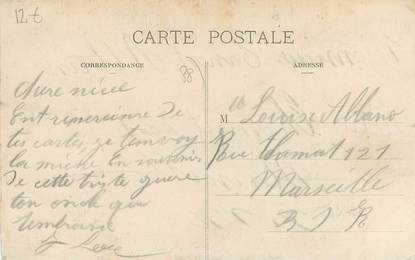 12€
CARTE POSTALE
CORRESPONDANCE
ADRESSE
88
chere niece
Ent remercime de
tes cartes, ge tanvoy
la miene En souvenir
De cette triste guere
ton oncle qui
tembrasse
Mlle Louise Albano
Rue thamat 121
Marseille
B D R